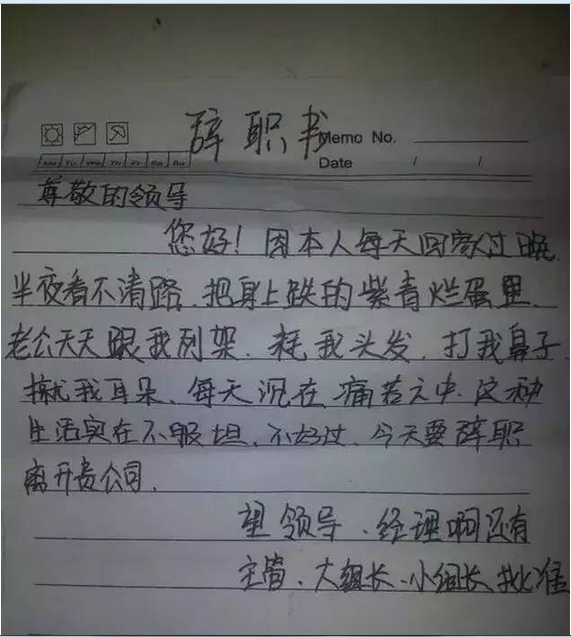 辞职书
Memo No.
Mo Tu We Th Fr Sa Su
Date / /
尊敬的领导
您好！因本人每天回家过晚
半夜看不清路、把身上跌的紫青烂蛋里、
老公天天跟我列架、耗我头发、打我鼻子
揪我耳朵、每天沉在痛苦之中、这种
生活实在不服坦、不好过、今天要辞职
离开贵公司、
望领导、经理啊还有
主管、大组长、小组长、批准